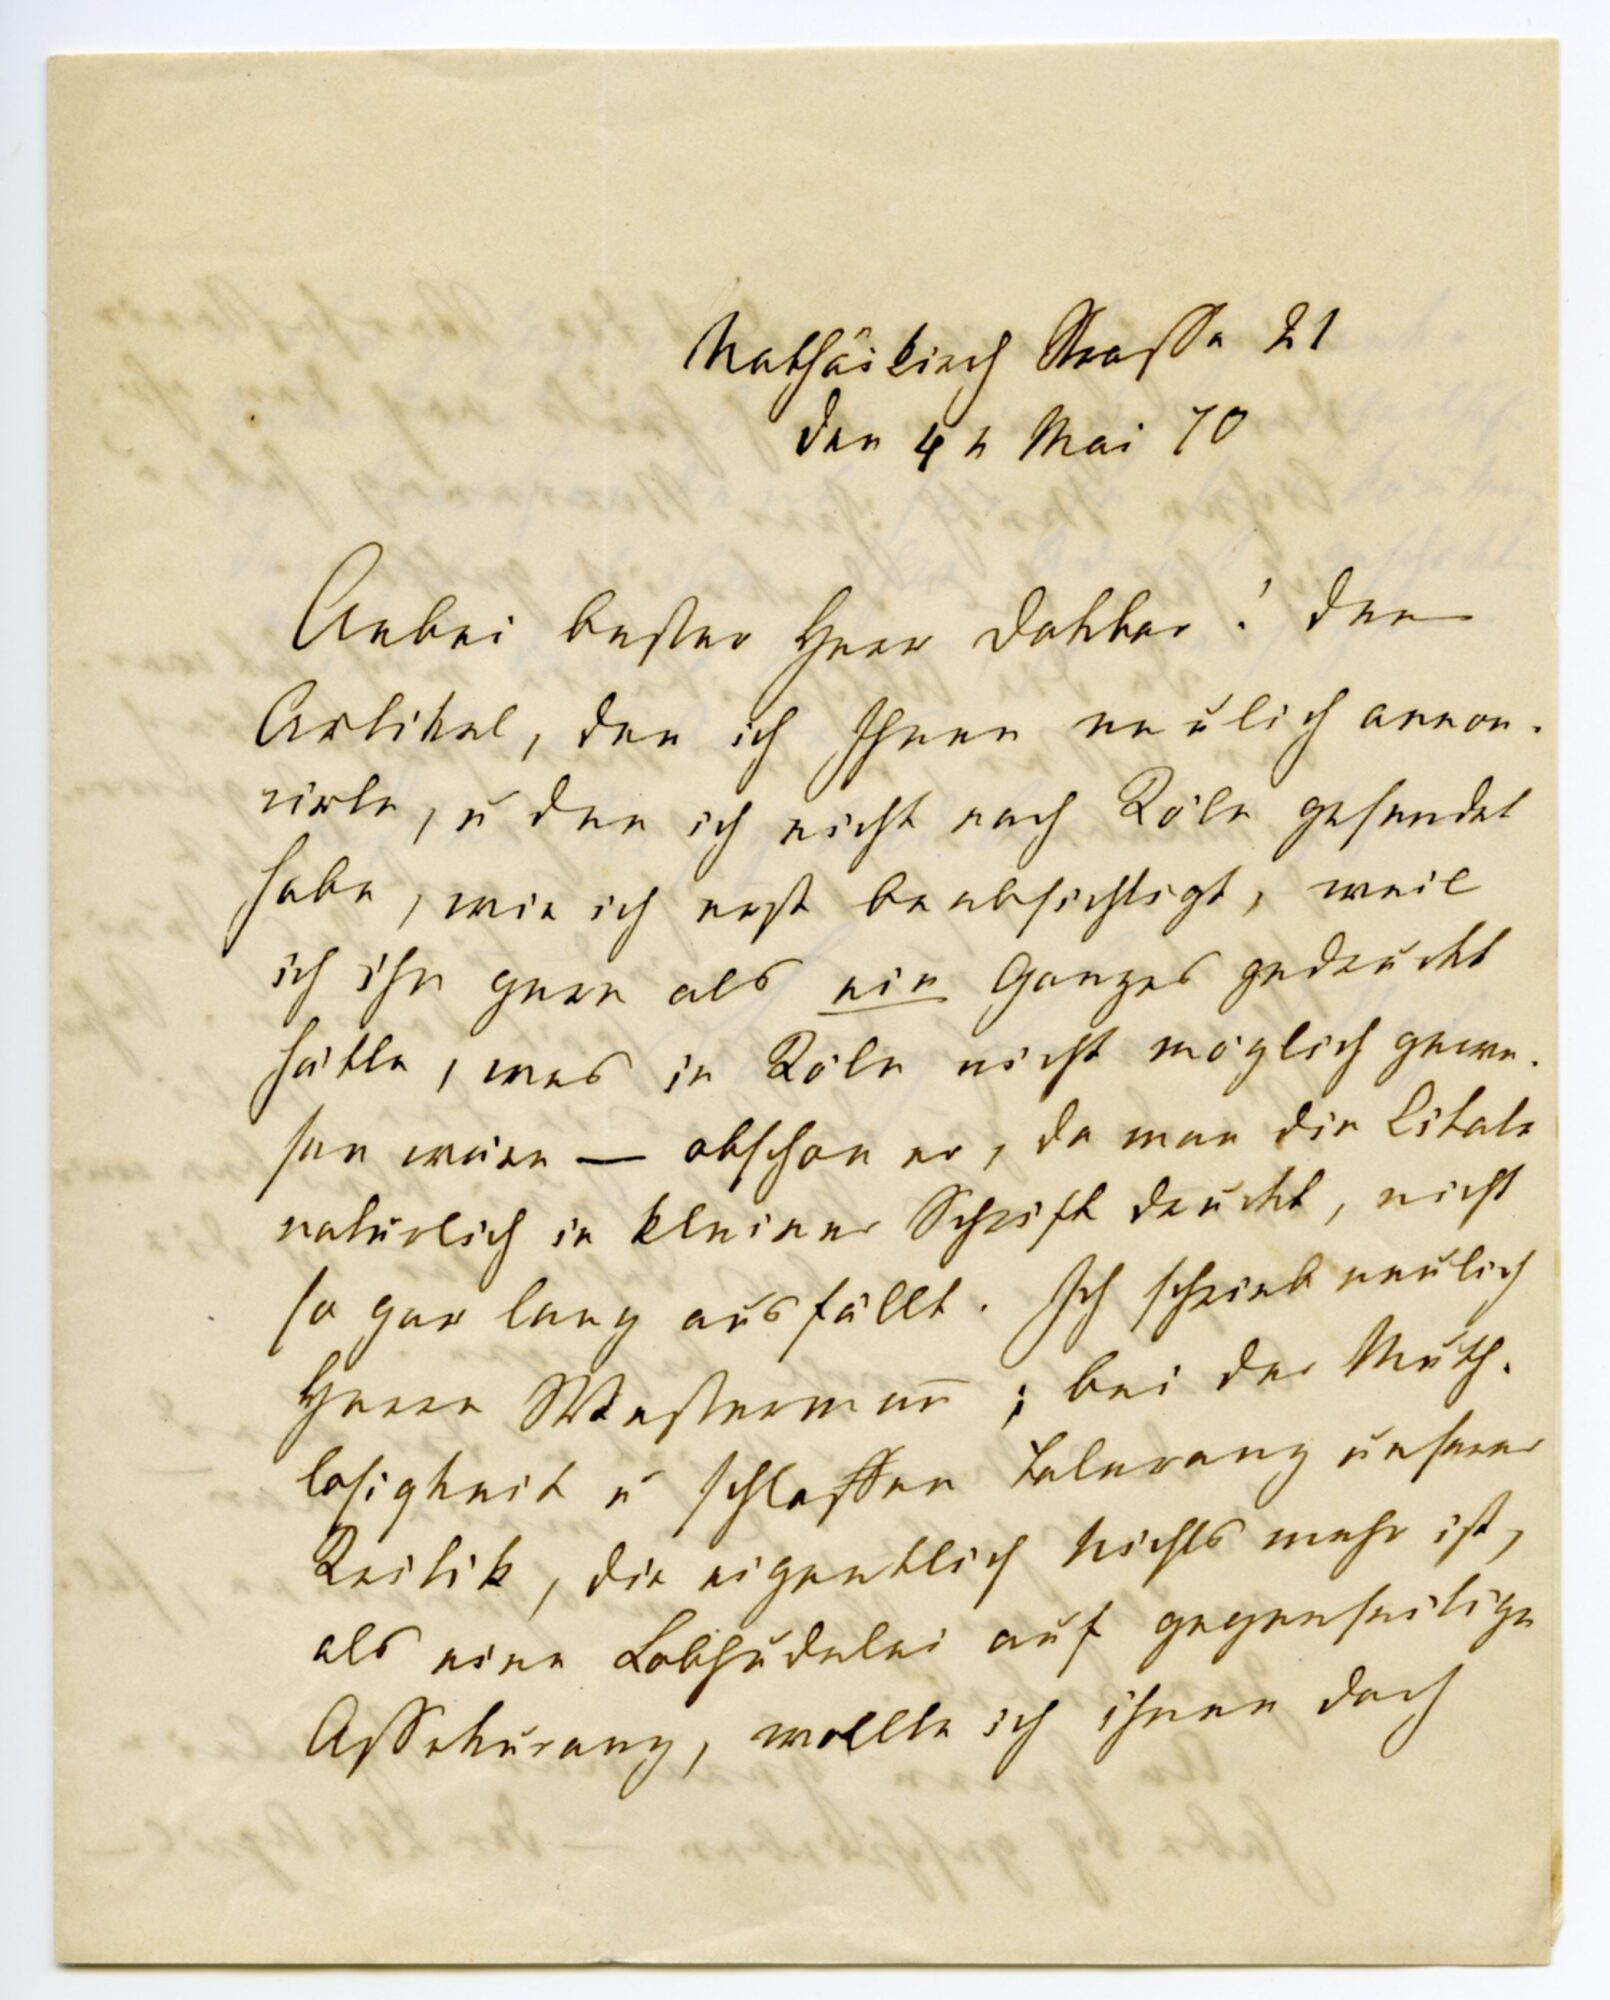 Mathäikirch Strasse 21
den 4t Mai 70
Anbei bester Herr Doktor! den
Artikel, den ich Ihnen neulich annon-
cirte, u den ich nicht nach Köln gesendet
habe, wie ich erst beabsichtigt, weil
ich ihn gern als ein Ganzes gedruckt
hätte, was in Köln nicht möglich gewe-
sen wäre — obschon er, da man die Citate
natürlich in kleiner Schrift druckt, nicht
so gar lang ausfällt. Ich schrieb neulich
Herrn Westermann; bei der Muth-
losigkeit u schlaffen Toleranz unserer
Kritik, die eigentlich Nichts mehr ist,
als eine Lobhudelei auf gegenseitige
Assekuranz, wollte ich ihnen doch